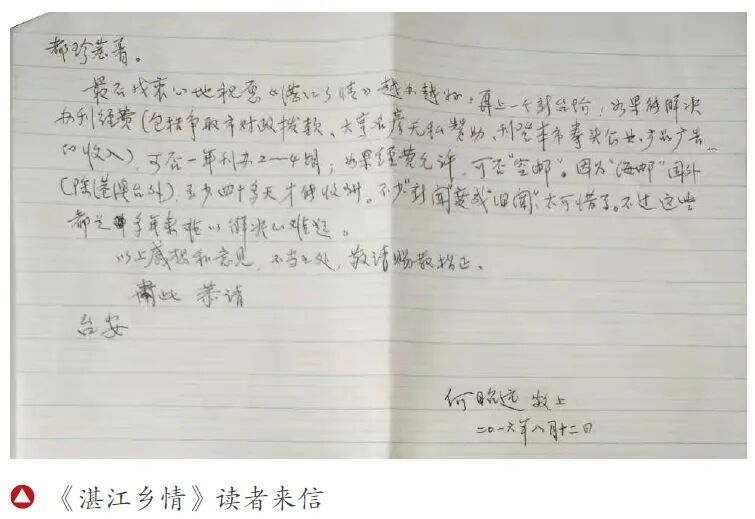 都珍若着。
最后我衷心地祝愿《湛江乡情》越办越好，再上一个新台阶，如果能解决
办刊经费（包括争取市财政拨款、大宗名彦无私赞助、刊登本市拳头企业、产品广告
的收入），可否一年刊办2～4期；如果经费允许，可否“空邮”。因为“海邮”国外
（除港澳台外），至少四十多天才能收到。不少“新闻”变成“旧闻”，太可惜了。不过这些
都是多年来难以解决的难题。
以上感想和意见，不当之处，敬请赐教指正。
肃此 恭请
台安
何昭远 敬上
二〇一六年八月十二日
《湛江乡情》读者来信